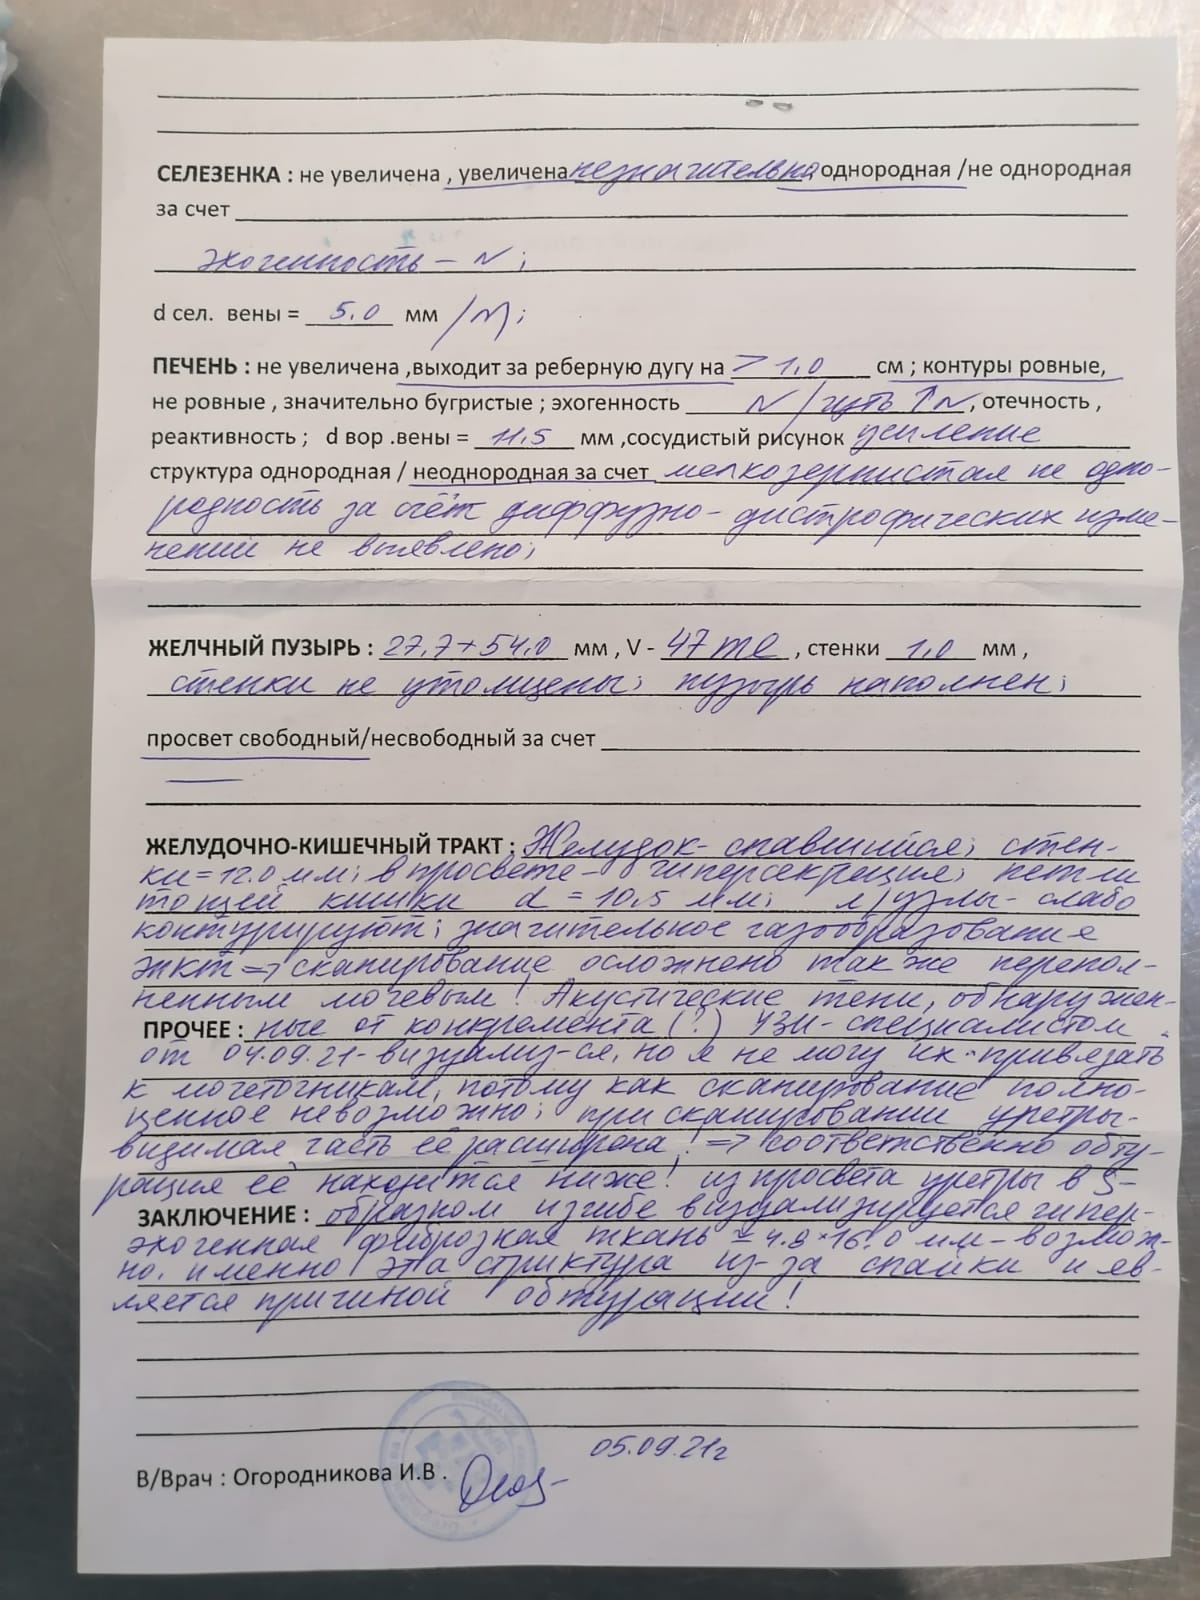 СЕЛЕЗЕНКА : не увеличена , увеличена незначительно, однородная /не однородная
за счет
эхогенность – N ;
d сел. вены = 5.0 мм /N;
ПЕЧЕНЬ : не увеличена ,выходит за реберную дугу на > 1,0 см ; контуры ровные,
не ровные , значительно бугристые ; эхогенность N / чуть ↑N , отечность ,
реактивность ; d вор .вены = 11.5 мм ,сосудистый рисунок усиление
структура однородная / неоднородная за счет мелкозернистая не одно-
родность за счёт диффузно-дистрофических изме-
нений не выявлено;
ЖЕЛЧНЫЙ ПУЗЫРЬ : 27,7+54,0 мм , V - 47 ml , стенки 1,0 мм ,
стенки не утолщены; пузырь наполнен;
просвет свободный/несвободный за счет
ЖЕЛУДОЧНО-КИШЕЧНЫЙ ТРАКТ : Желудок-спавшийся; стен-
ки=12.0 мм; в просвете- гиперсекреция; петли
тощей кишки d = 10,5 мм; л/узлы- слабо
контурируют; значительное газообразование
ЖКТ => сканирование осложнено так же перепол-
ненным мочевым! Акустические тени, обнаружен-
ПРОЧЕЕ : ные от конкремента (?) УЗИ-специалистом
от 04.09.21-визуализ-ся, но я не могу их привязать
к мочеточникам, потому как сканирование полно-
ценное невозможно; при сканировании уретры-
видимая часть её расширена! => соответственно обту-
рация её находится ниже! из просвета уретры в S-
ЗАКЛЮЧЕНИЕ : образном изгибе визуализируется гипер-
эхогенная фиброзная ткань ≈ 4.8*16.0 мм – возмож-
но. именно эта структура из-за спайки и яв-
ляется причиной обтурации!
05.09.21г
В/Врач : Огородникова И.В .